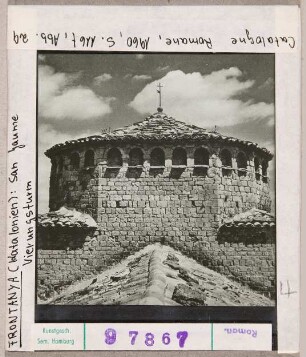 Catalogne Romane, 1960, S. 226f, Abb. 29
FRONTANYA (Katalonien): San Jaume
Vierungsturm
Kunstgesch.
Sem. Hamburg
97867
Roman.